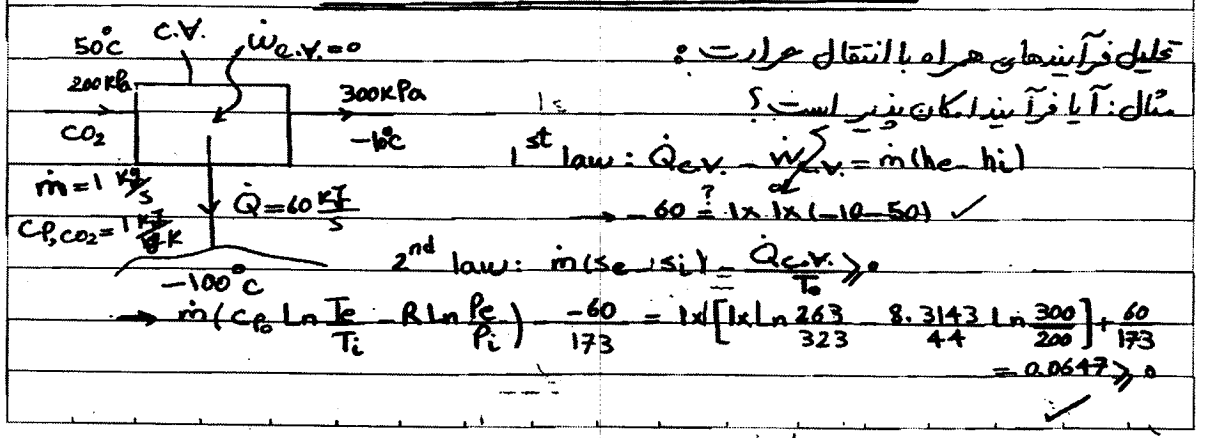 تحلیل فرآیندهای همراه با انتقال حرارت :
مثال: آیا فرآیند امکان پذیر است؟
50°C C.V. Ẇc.v.=0
200 kPa 300 kPa
CO2 -10°C
ṁ=1 kg/s
Q̇=60 kJ/s
CP,CO2=1 kJ/kgK
-100°C
1st law: Q̇c.v. - Ẇc.v. = ṁ(he-hi)
→ -60 ≟ 1×1×(-10-50) ✓
2nd law: ṁ(se-si) - Q̇c.v./T0 ⩾ 0
→ ṁ(CP0 Ln Te/Ti - R Ln Pe/Pi) - -60/173 = 1×[1×Ln 263/323 - 8.3143/44 Ln 300/200] + 60/173
= 0.0647 ⩾ 0
✓